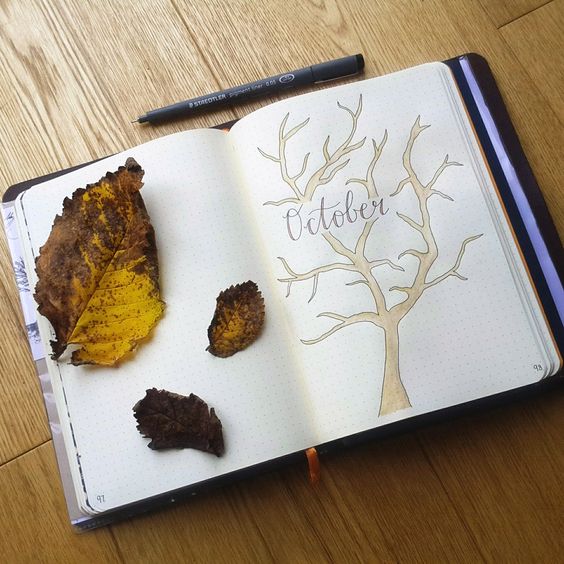 STAEDTLER pigment liner 0.05
October
97
98